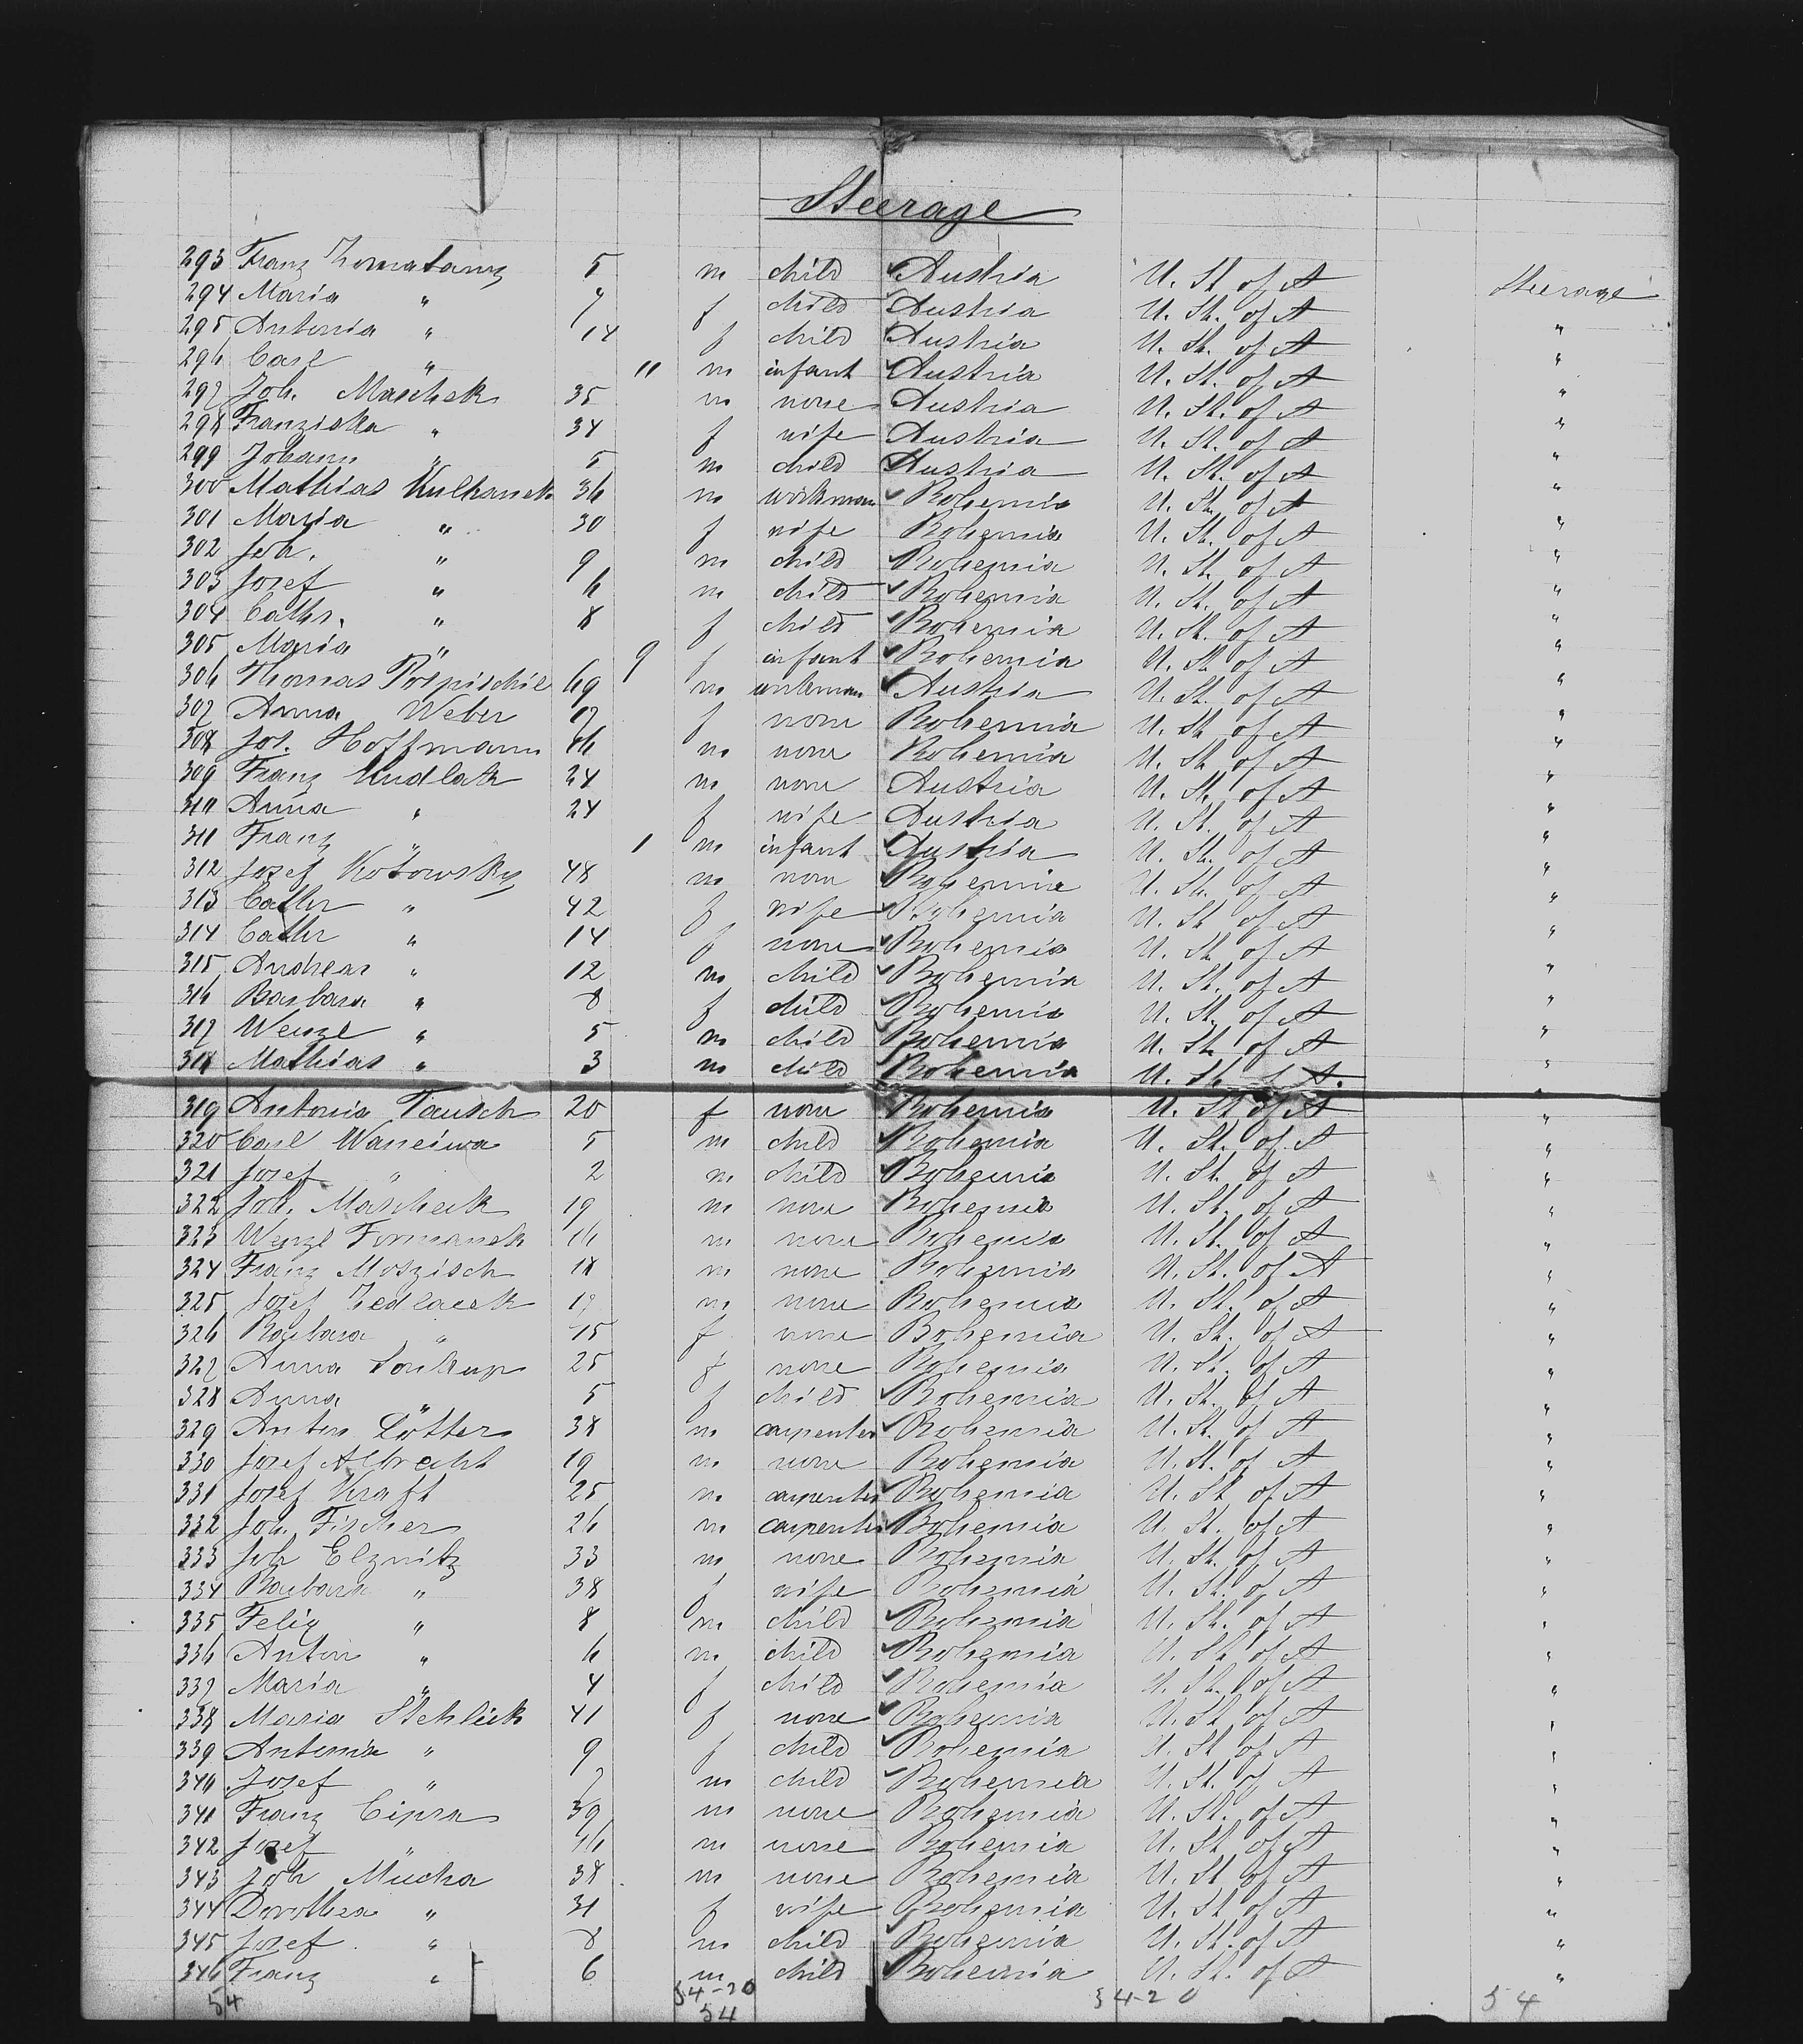 Steerage
293 Franz 5 m child Austria U. St. of A Steerage
294 Maria " 7 f child Austria U. St. of A "
295 Antonia " 14 f child Austria U. St. of A "
296 Carl " 11 m infant Austria U. St. of A "
297 Joh. Maschek 35 m none Austria U. St. of A "
298 Franziska " 34 f wife Austria U. St. of A "
299 Johann " 5 m child Austria U. St. of A "
300 Mathias Kulhanek 36 m workman Bohemia U. St. of A "
301 Maria " 30 f wife Bohemia U. St. of A "
302 Joh. " 9 m child Bohemia U. St. of A "
303 Josef " 6 m child Bohemia U. St. of A "
304 Cath. " 8 f child Bohemia U. St. of A "
305 Maria " 9 f infant Bohemia U. St. of A "
306 Thomas Pospischil 69 m workman Austria U. St. of A "
307 Anna Weber 17 f none Bohemia U. St. of A "
308 Jos. Hoffmann 46 m none Bohemia U. St. of A "
309 Franz Kudlak 24 m none Austria U. St. of A "
310 Anna " 24 f wife Austria U. St. of A "
311 Franz " 1 m infant Austria U. St. of A "
312 Josef Kotowsky 48 m none Bohemia U. St. of A "
313 Cathr " 42 f wife Bohemia U. St. of A "
314 Cathr " 14 f none Bohemia U. St. of A "
315 Andreas " 12 m child Bohemia U. St. of A "
316 Barbara " 8 f child Bohemia U. St. of A "
317 Wenzl " 5 m child Bohemia U. St. of A "
318 Mathias " 3 m child Bohemia U. St. of A. "
319 Antonia Tausch 20 f none Bohemia U. St. of A "
320 Carl Waneiwa 5 m child Bohemia U. St. of A "
321 Josef " 2 m child Bohemia U. St. of A "
322 Joh. Mascheck 19 m none Bohemia U. St. of A "
323 Wenzl Formanek 16 m none Bohemia U. St. of A "
324 Franz Moszisch 18 m none Bohemia U. St. of A "
325 Josef Zedlacek 17 m none Bohemia U. St. of A "
326 Barbara " 15 f none Bohemia U. St. of A "
327 Anna Soukup 25 f none Bohemia U. St. of A "
328 Anna " 5 f child Bohemia U. St. of A "
329 Anton Lötter 38 m carpenter Bohemia U. St. of A "
330 Josef Albrecht 19 m none Bohemia U. St. of A "
331 Josef Kraft 25 m carpenter Bohemia U. St. of A "
332 Joh. Fischer 26 m carpenter Bohemia U. St. of A "
333 Joh Elznitz 33 m none Bohemia U. St. of A "
334 Barbara " 38 f wife Bohemia U. St. of A "
335 Felix " 8 m child Bohemia U. St. of A "
336 Anton " 6 m child Bohemia U. St. of A "
337 Maria " 4 f child Bohemia U. St. of A "
338 Maria Stehlick 41 f none Bohemia U. St. of A "
339 Antonia " 9 f child Bohemia U. St. of A "
340 Josef " 7 m child Bohemia U. St. of A "
341 Franz Cipra 39 m none Bohemia U. St. of A "
342 Josef " 46 m none Bohemia U. St. of A "
343 Joh Mucha 38 m none Bohemia U. St. of A "
344 Dorothea " 31 f wife Bohemia U. St. of A "
345 Josef " 8 m child Bohemia U. St. of A "
346 Franz " 6 m child Bohemia U. St. of A "
54 54-20 54-20 54
54